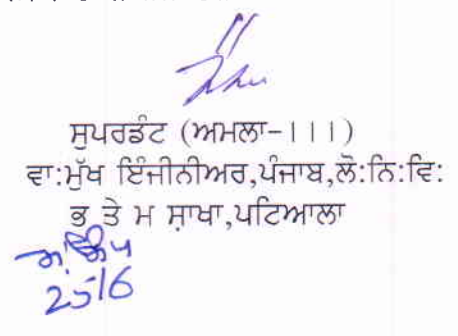 ਸੁਪਰਡੰਟ (ਅਮਲਾ-।।।)
ਵਾ:ਮੁੱਖ ਇੰਜੀਨੀਅਰ,ਪੰਜਾਬ,ਲੋ:ਨਿ:ਵਿ:
ਭ ਤੇ ਮ ਸ਼ਾਖਾ,ਪਟਿਆਲਾ
25/6